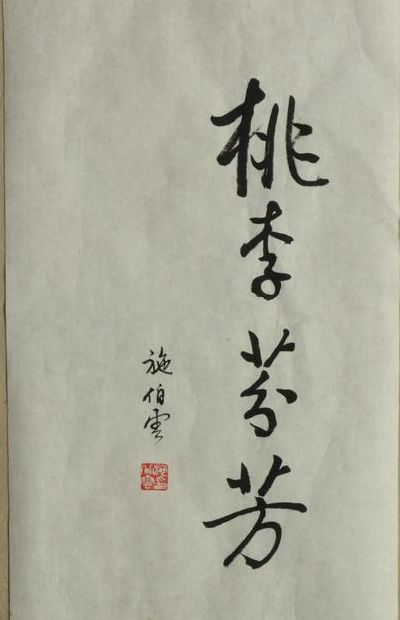 桃李芬芳
施伯雲